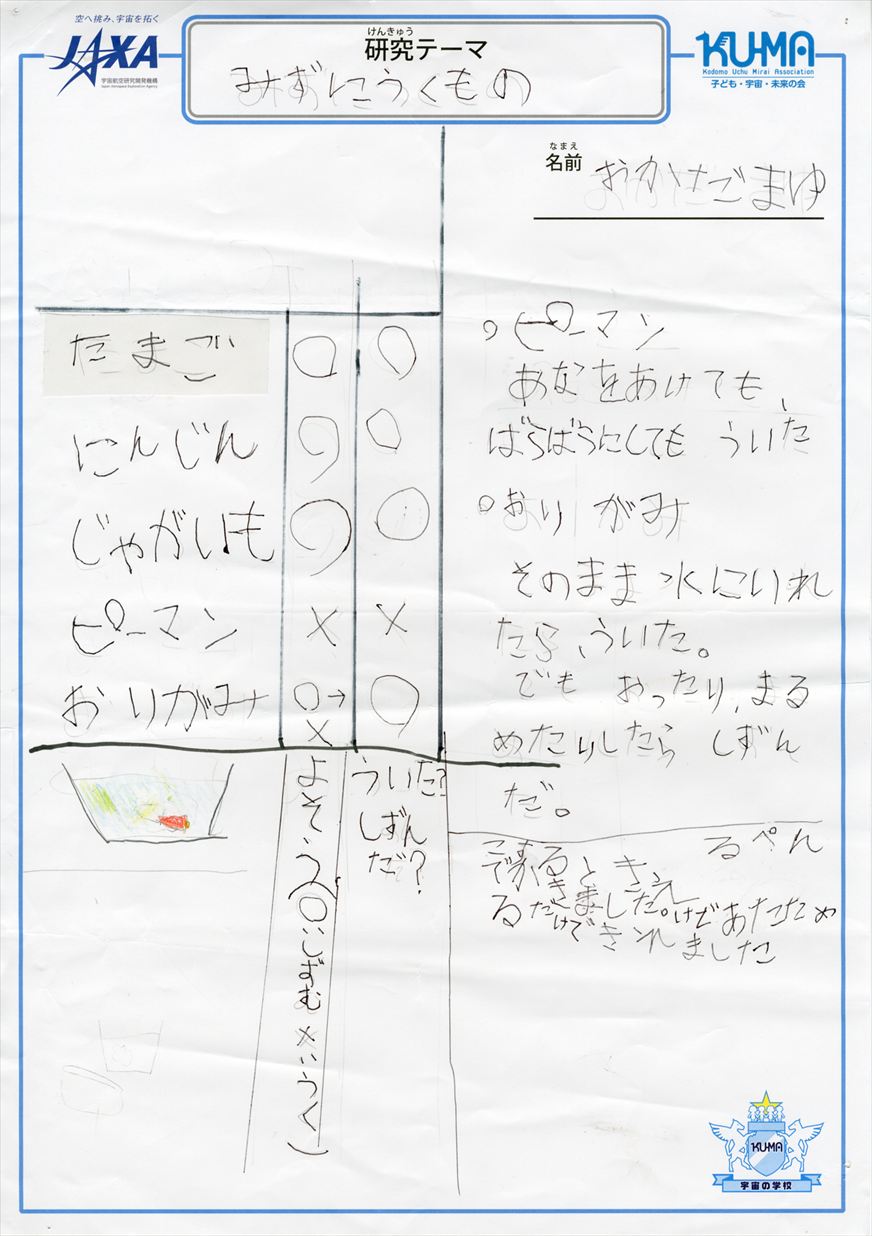 空へ挑み、宇宙を拓く
JAXA
宇宙航空研究開発機構
Japan Aerospace Exploration Agency
けんきゅう
研究テーマ
みずにうくもの
KU-MA
Kodomo Uchu Mirai Association
子ども・宇宙・未来の会
なまえ
名前 おかだごまゆ
たまご ○ ○
にんじん ○ ○
じゃがいも ○ ○
ピーマン × ×
おりがみ ○→× ○
よそう(○…しずむ ×…うく)
ういた?
しずん
だ?
○ピーマン
あなをあけても、
ばらばらにしても ういた
○おりがみ
そのまま水にいれ
たら、ういた。
でも おったり、まる
めたりしたら しずん
だ。
るぺん
こする
ときえ
る
きました。
けどあたため
だけで
きえました
KU-MA
宇宙の学校